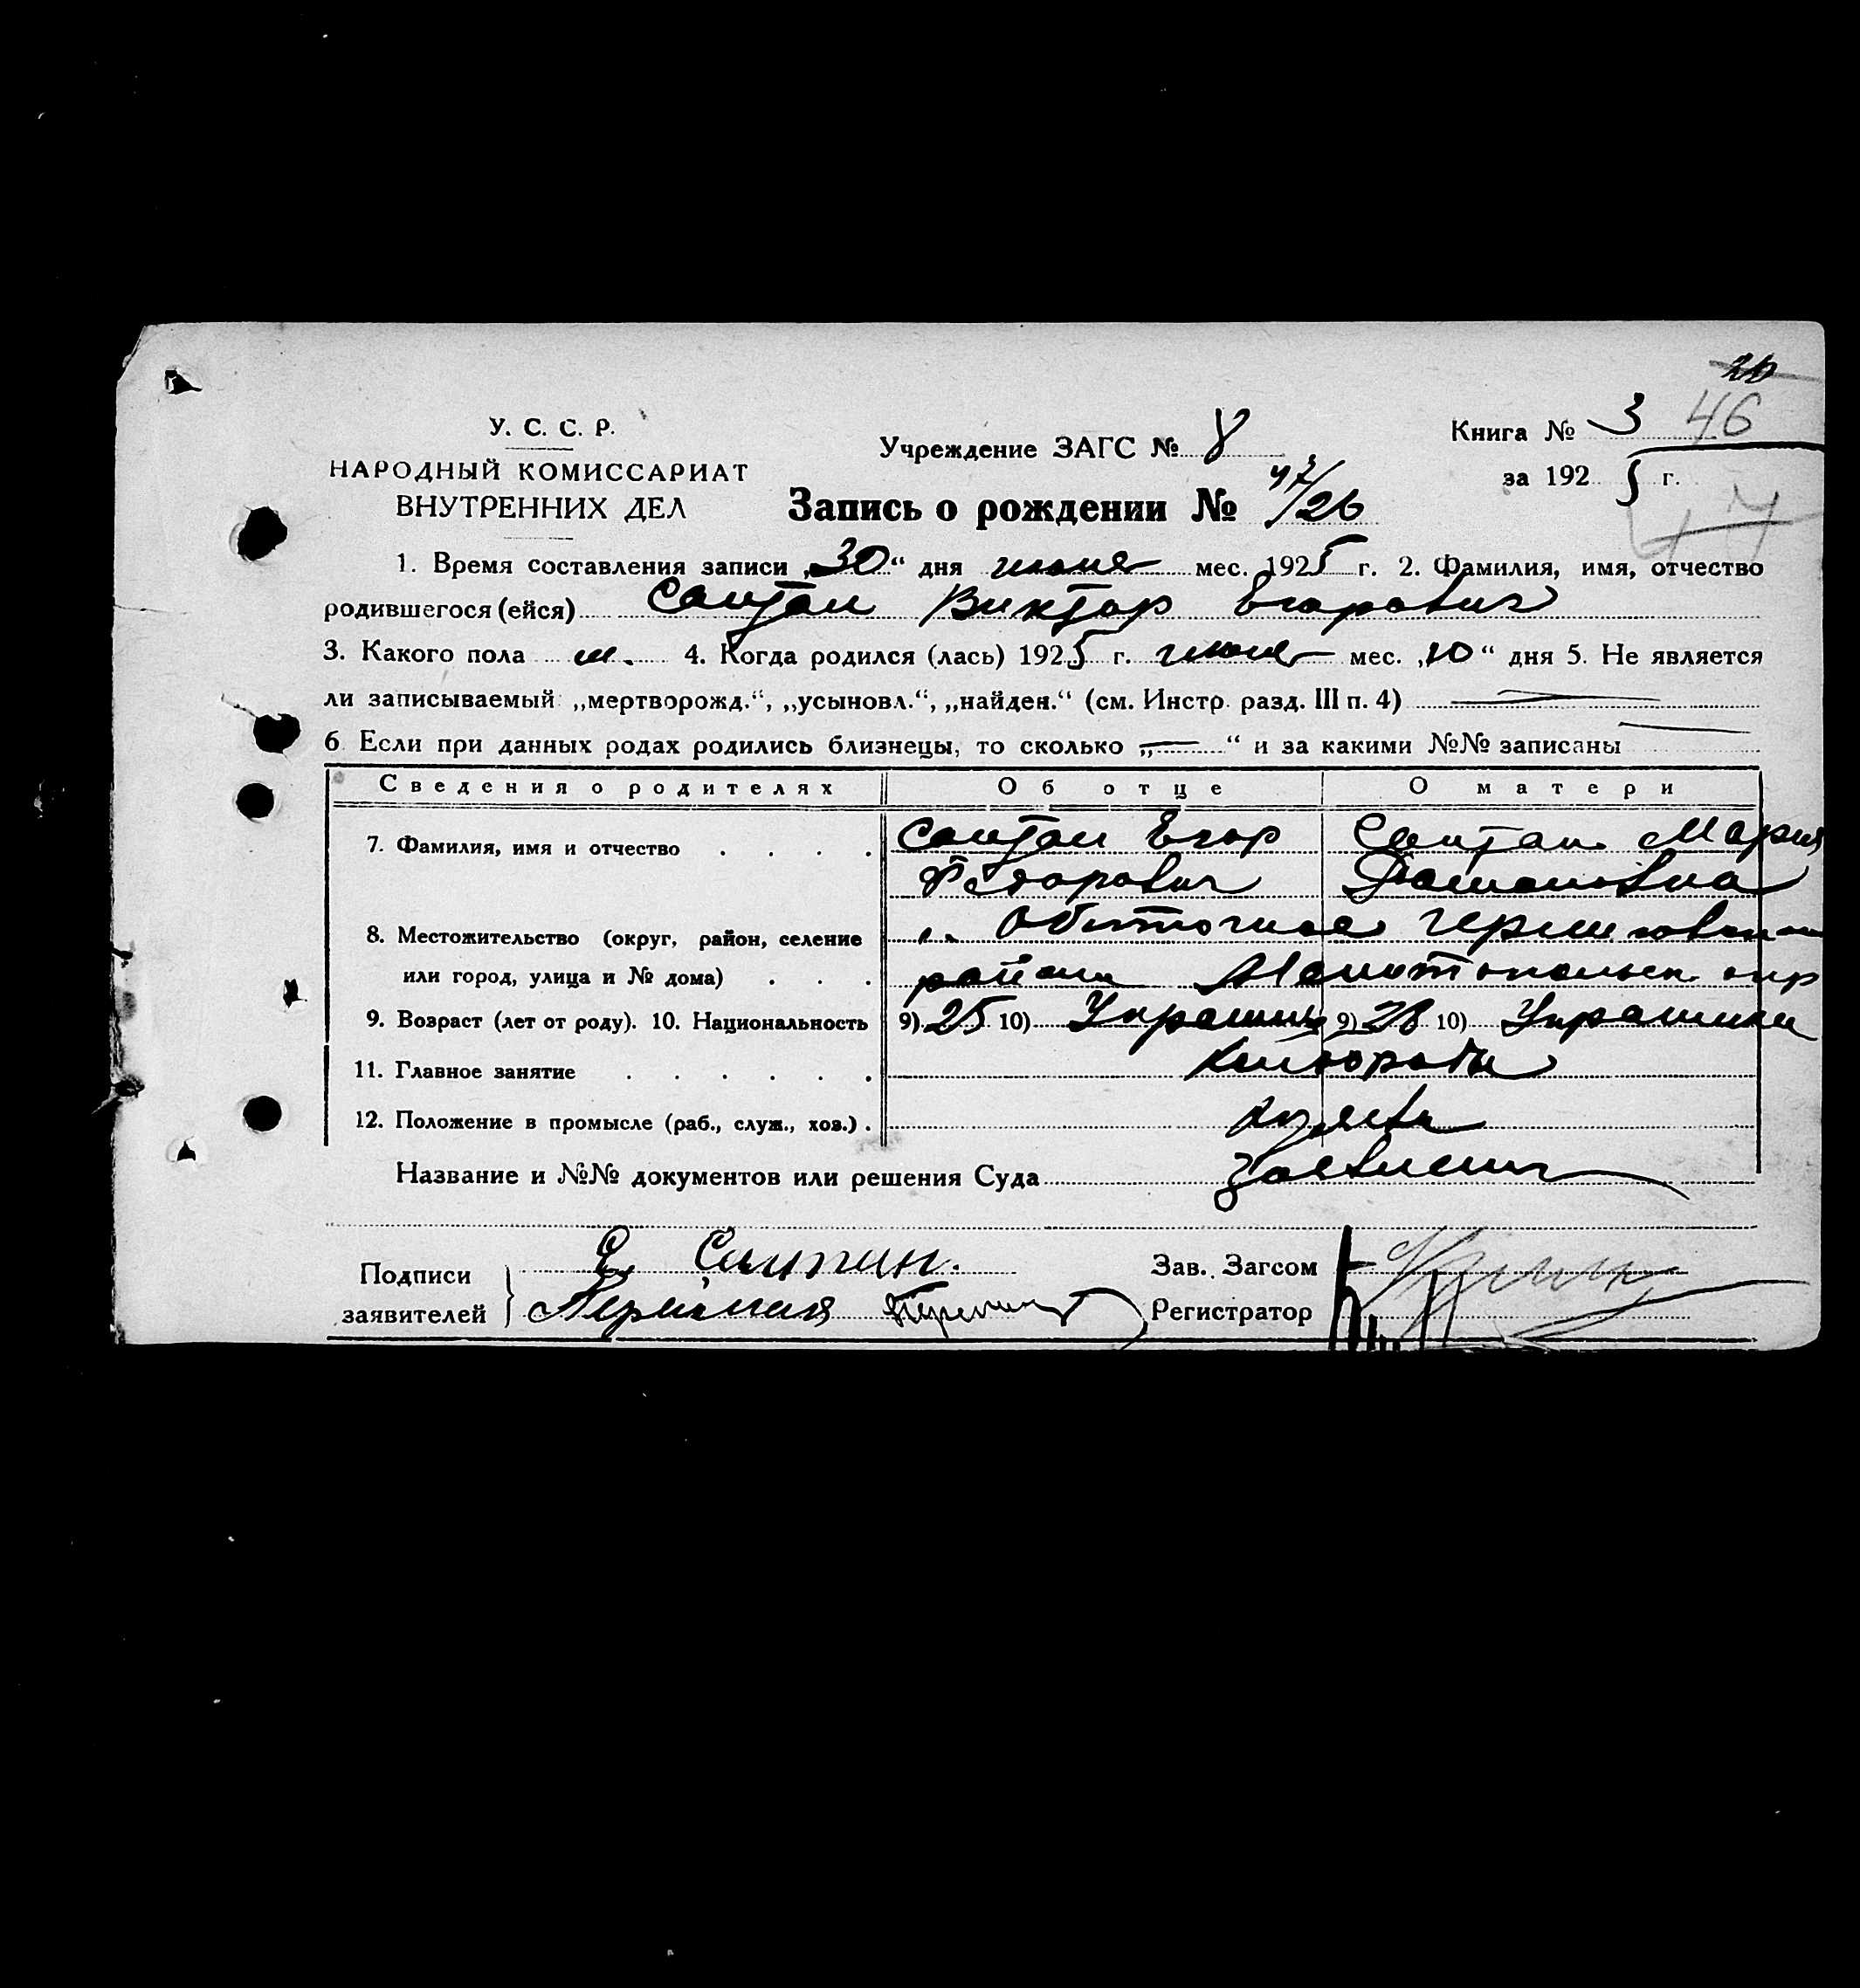 20
У. С. С. Р.
НАРОДНЫЙ КОМИССАРИАТ
ВНУТРЕННИХ ДЕЛ
Учреждение ЗАГС № 8
Книга № 3 46
за 1925 г.
Запись о рождении № 47/26
1. Время составления записи „30“ дня июня мес. 1925 г. 2. Фамилия, имя, отчество
родившегося (ейся) Султан Виктор Егорович
3. Какого пола м. 4. Когда родился (лась) 1925 г. июня мес. „10“ дня 5. Не является
ли записываемый „мертворожд.“, „усыновл.“, „найден.“ (см. Инстр. разд. III п. 4) —
6 Если при данных родах родились близнецы, то сколько „—“ и за какими №№ записаны —
Сведения о родителях Об отце О матери
7. Фамилия, имя и отчество . . . . Султан Егор Султан Мария
Федорович
8. Местожительство (округ, район, селение с. Обиточное Черниговского
или город, улица и № дома) . . . района Мелитопольск окр
9. Возраст (лет от роду). 10. Национальность 9) 25 10) Украинец 9) 28 10) Украинка
11. Главное занятие . . . . . . хлебороды
12. Положение в промысле (раб., служ., хоз.) . хозяева
Название и №№ документов или решения Суда
Подписи
заявителей
Е. Султан.
Зав. Загсом
Регистратор